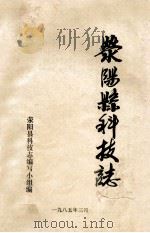 荥陽縣科技誌
荥阳县科技志编写小组编
一九八五年三月